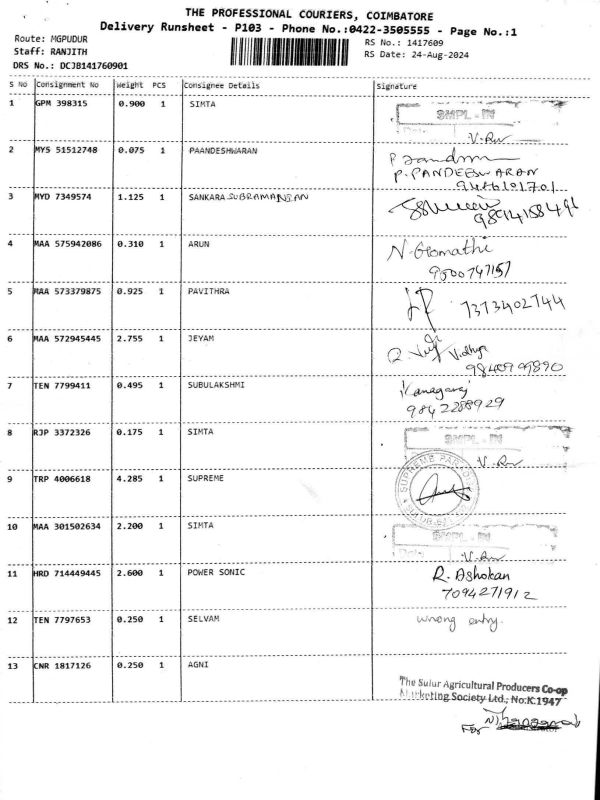 THE PROFESSIONAL COURIERS, COIMBATORE
Delivery Runsheet - P103 - Phone No.:0422-3505555 - Page No.:1
Route: MGPUDUR
Staff: RANJITH
DRS No.: DCJB141760901
RS No.: 1417609
RS Date: 24-Aug-2024
S No Consignment No Weight PCS Consignee Details Signature
1 GPM 398315 0.900 1 SIMTA SMPL-IN
Date
2 MYS 51512748 0.075 1 PAANDESHWARAN
P.PANDEESWARAN
9486101701
3 MYD 7349574 1.125 1 SANKARASUBRAMANIAN
4 MAA 575942086 0.310 1 ARUN N.Gomathi
9500747157
5 MAA 573379875 0.925 1 PAVITHRA 7373402744
6 MAA 572945445 2.755 1 JEYAM Vidhya
9840999890
7 TEN 7799411 0.495 1 SUBULAKSHMI Kanagaraj
9842288929
8 RJP 3372326 0.175 1 SIMTA SMPL-IN
9 TRP 4006618 4.285 1 SUPREME SUPREME
SULUR
10 MAA 301502634 2.200 1 SIMTA SMPL-IN
Date
11 HRD 714449445 2.600 1 POWER SONIC R. Ashokan
7094271912
12 TEN 7797653 0.250 1 SELVAM wrong entry.
13 CNR 1817126 0.250 1 AGNI
The Sulur Agricultural Producers Co-op
Marketing Society Ltd., No:K.1947
For